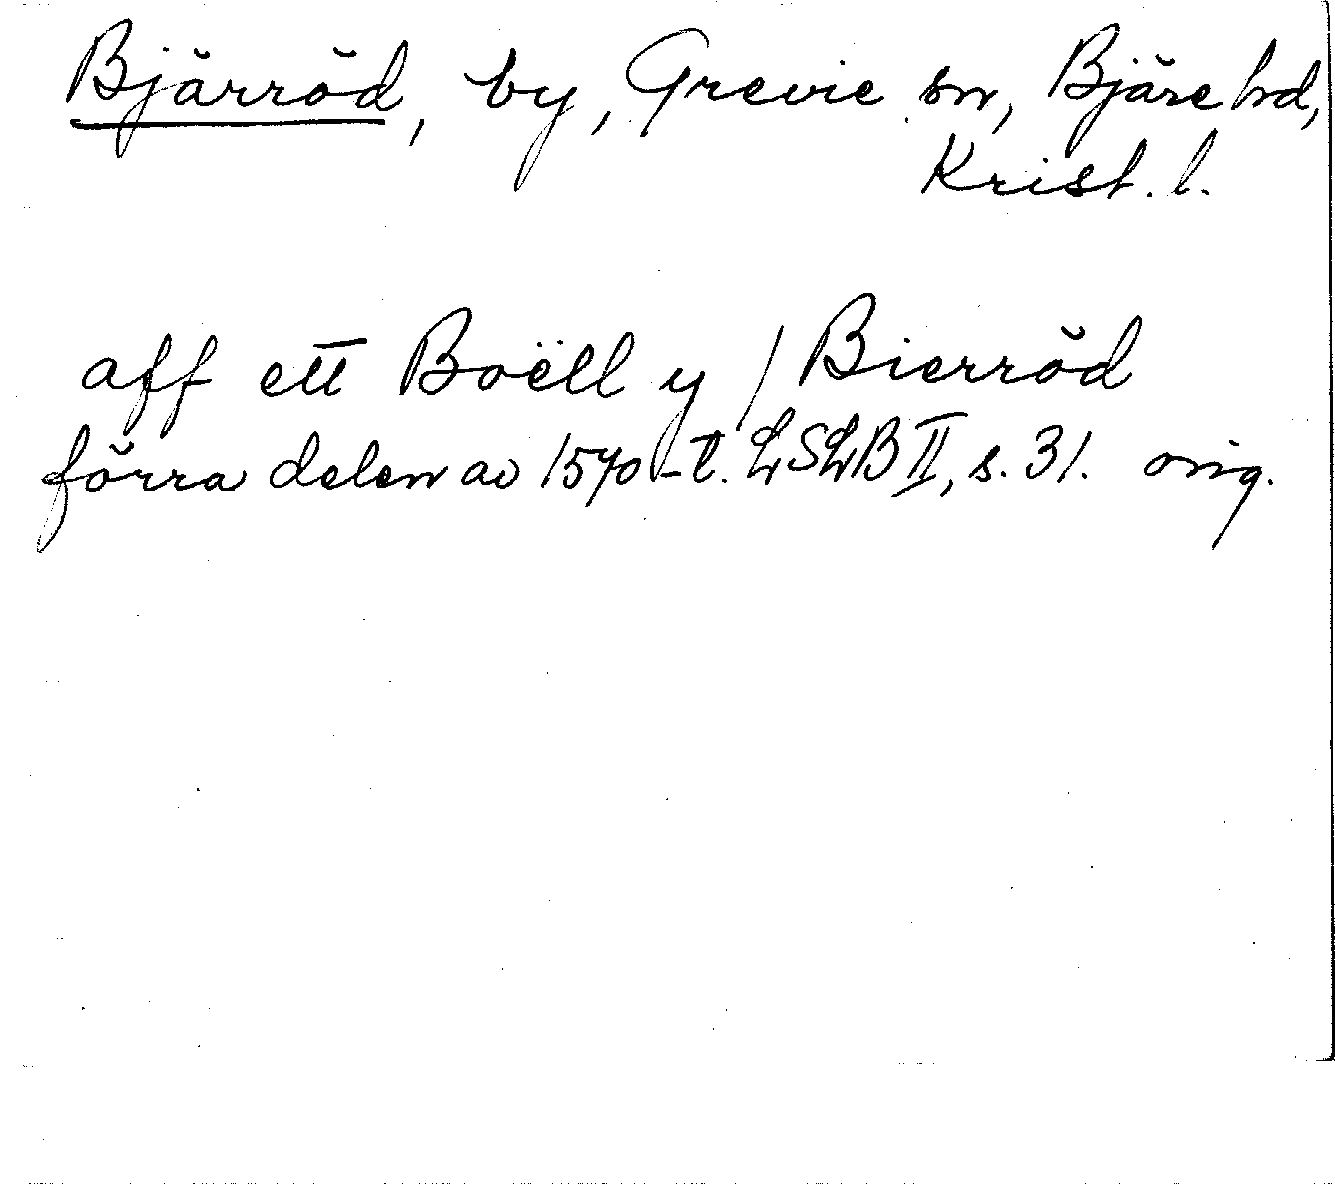 Bjärröd, by, Grevie sn, Bjäre hd,
Krist. l.
aff ett Boëll y / Bierröd
förra delen av 1570-t. LSLB II, s. 31. orig.